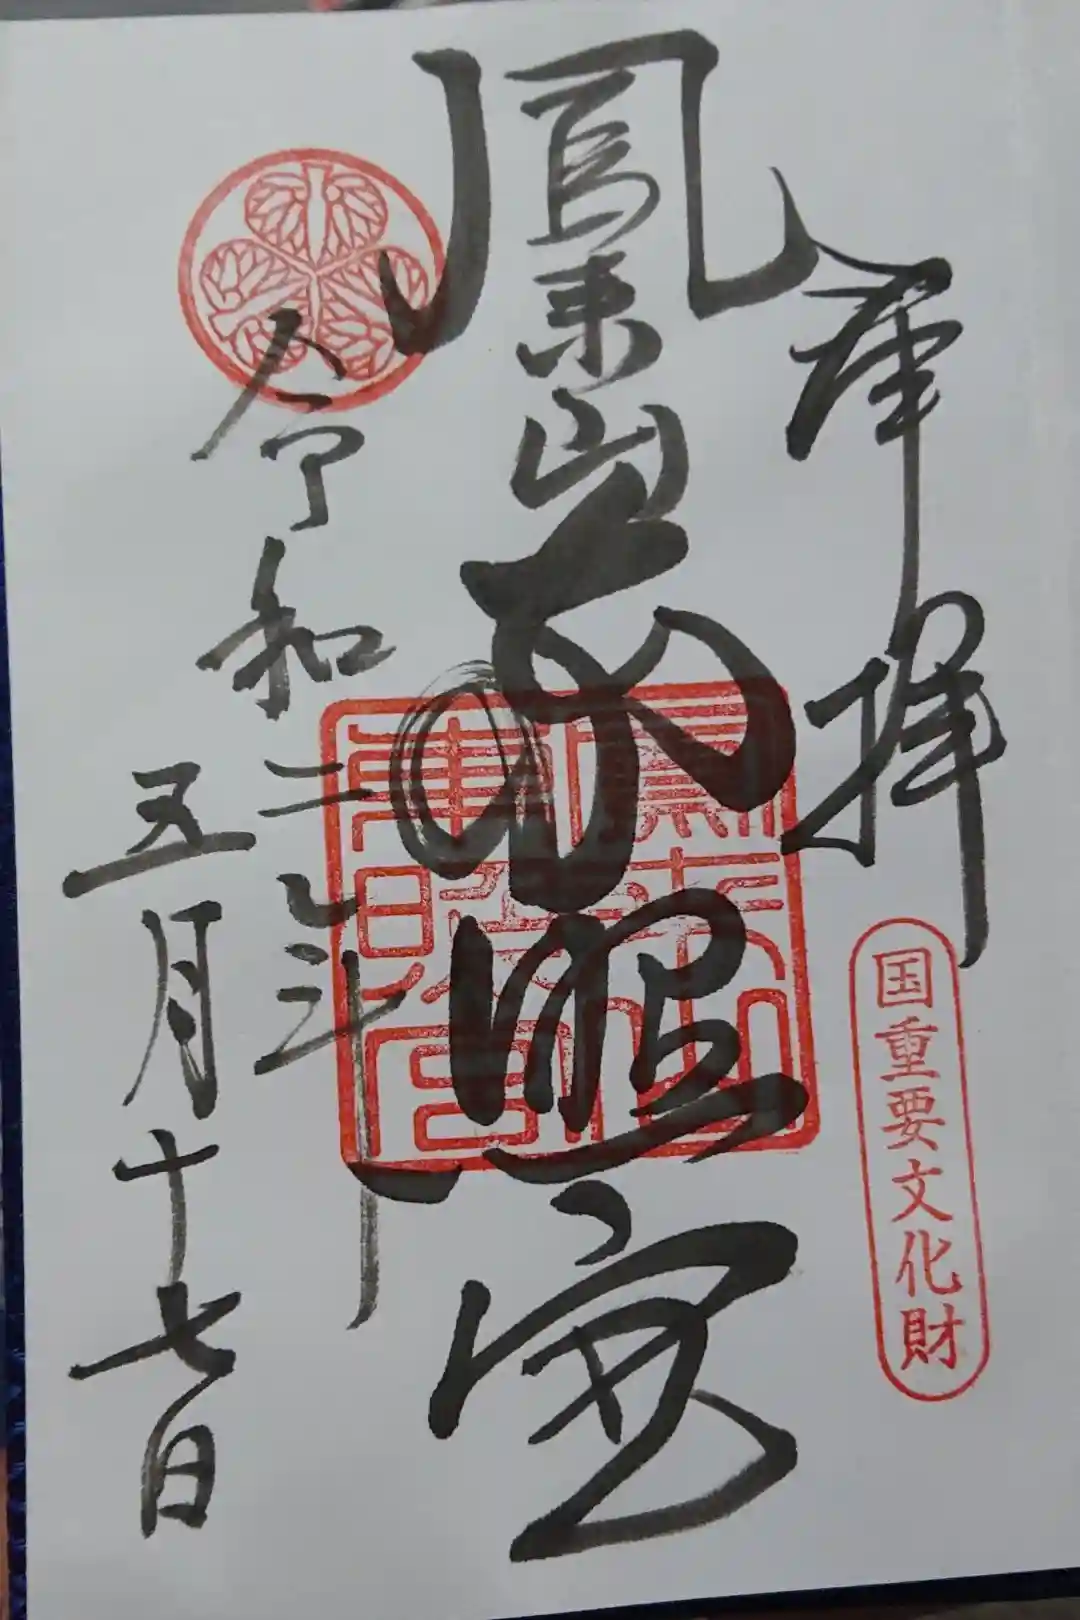 奉拝
国重要文化財
鳳来山
東照宮
鳳来山東照宮
令和二年
五月十七日